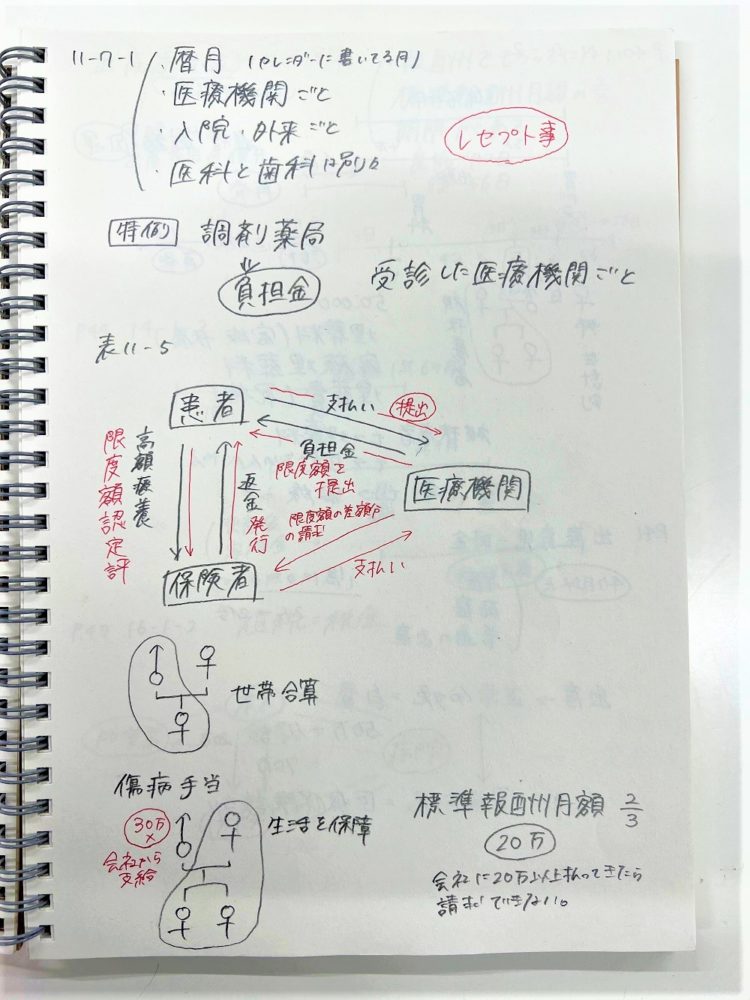 11-7-1 ・暦月 (カレンダーに書いてる月)
・医療機関ごと
・入院・外来ごと
・医科と歯科は別々
レセプト事
特例 調剤薬局
負担金 受診した医療機関ごと
表11-5
患者
支払い 提出
負担金
限度額を提出
医療機関
限度額の差額分の請求
高額療養
限度額認定評
返金
発行
保険者
支払い
世帯合算
傷病手当
30万
×
会社から
支給
生活を保障
標準報酬州月額 2/3
20万
会社に20万以上払ってきたら
請求できない。